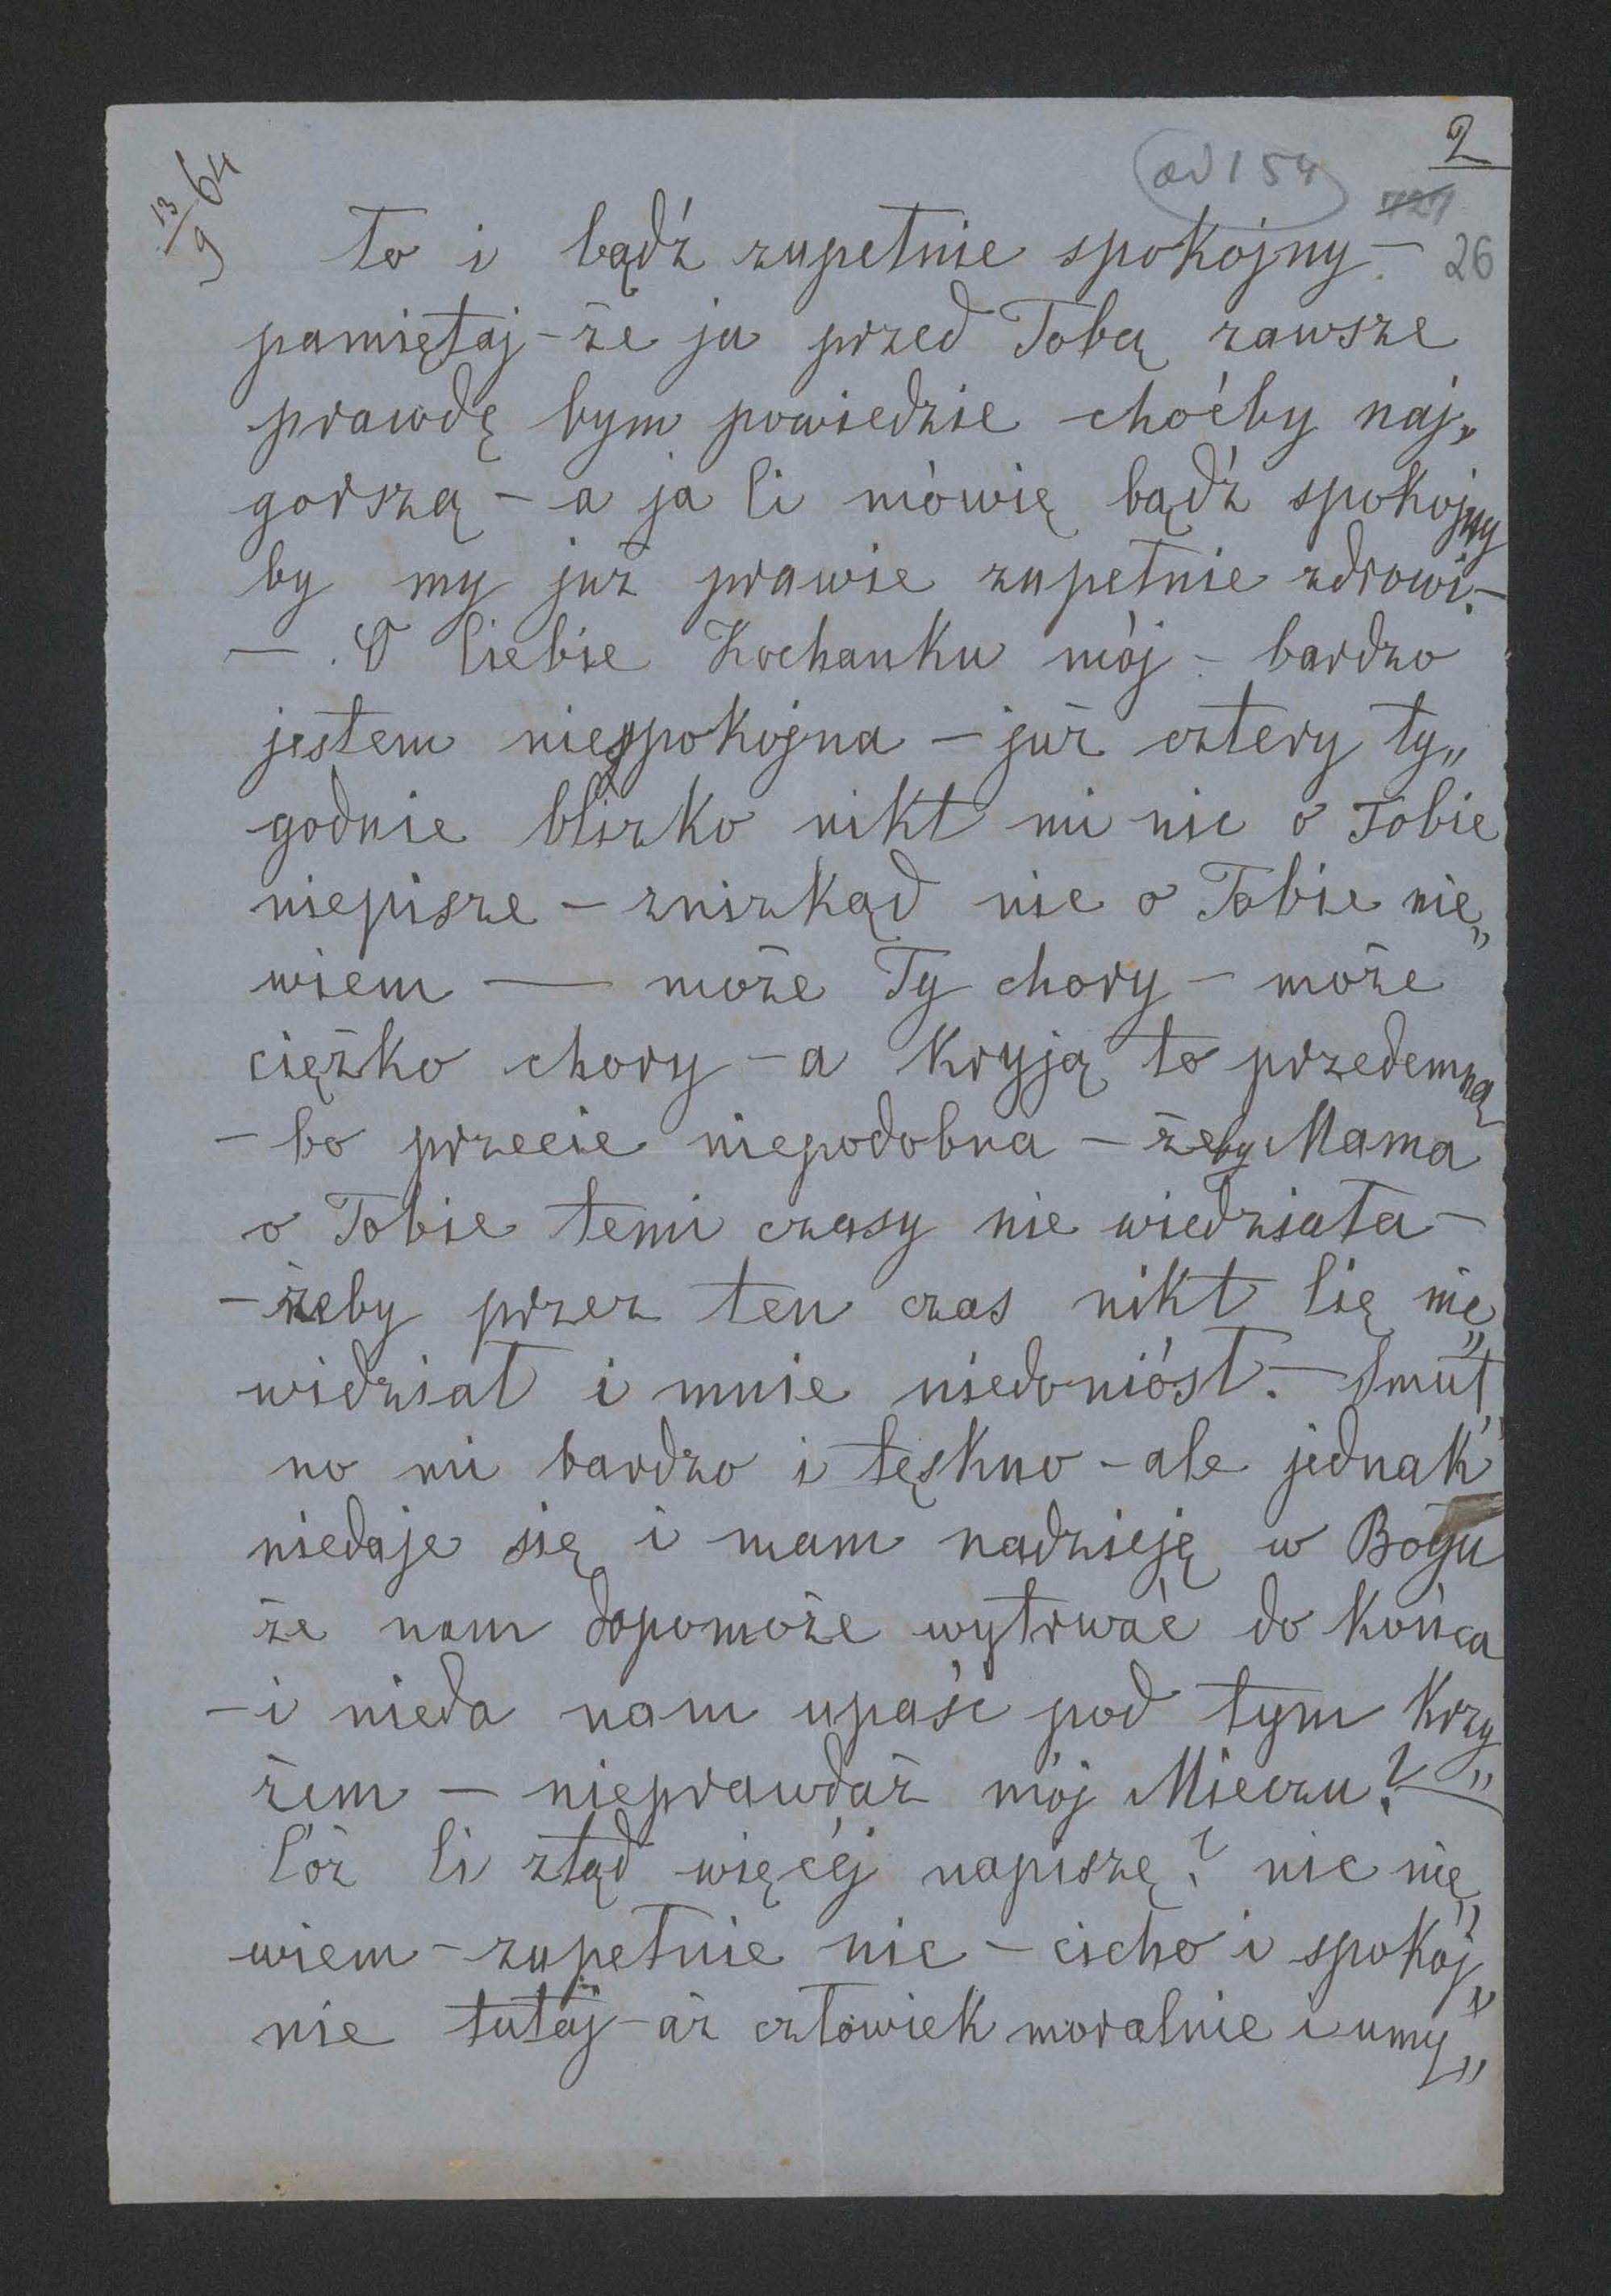 2
13/9 64
ad 154
727
26
to i bądź zupełnie spokojny –
pamiętaj – że ja przed Tobą zawsze
prawdę bym powiedzie choćby naj„
gorszą – a ja Ci mówię bądź spokojny
by my już prawie zupełnie zdrowi. –
— . O Ciebie Kochanku mój – bardzo
jestem niespokojna – już cztery ty„
godnie blizko nikt mi nic o Tobie
niepisze – znizkąd nic o Tobie nie„
wiem — może Ty chory – może
ciężko chory – a kryją to przedemną
– bo przecie niepodobna – żeby Mama
o Tobie temi czasy nie wiedziała –
– żeby przez ten czas nikt Cię nie„
widział i mnie niedoniósł. – Smut„
no mi bardzo i tęskno – ale jednak
niedaje się i mam nadzieję w Bogu
że nam dopomoże wytrwać do końca
– i nieda nam upaść pod tym krzy„
żem – nieprawdaż mój Mieczu? –
Cóż Ci ztąd więcéj napiszę? nic nie„
wiem – zupełnie nic – cicho i spokój„
nie tutaj – aż człowiek moralnie i umy„